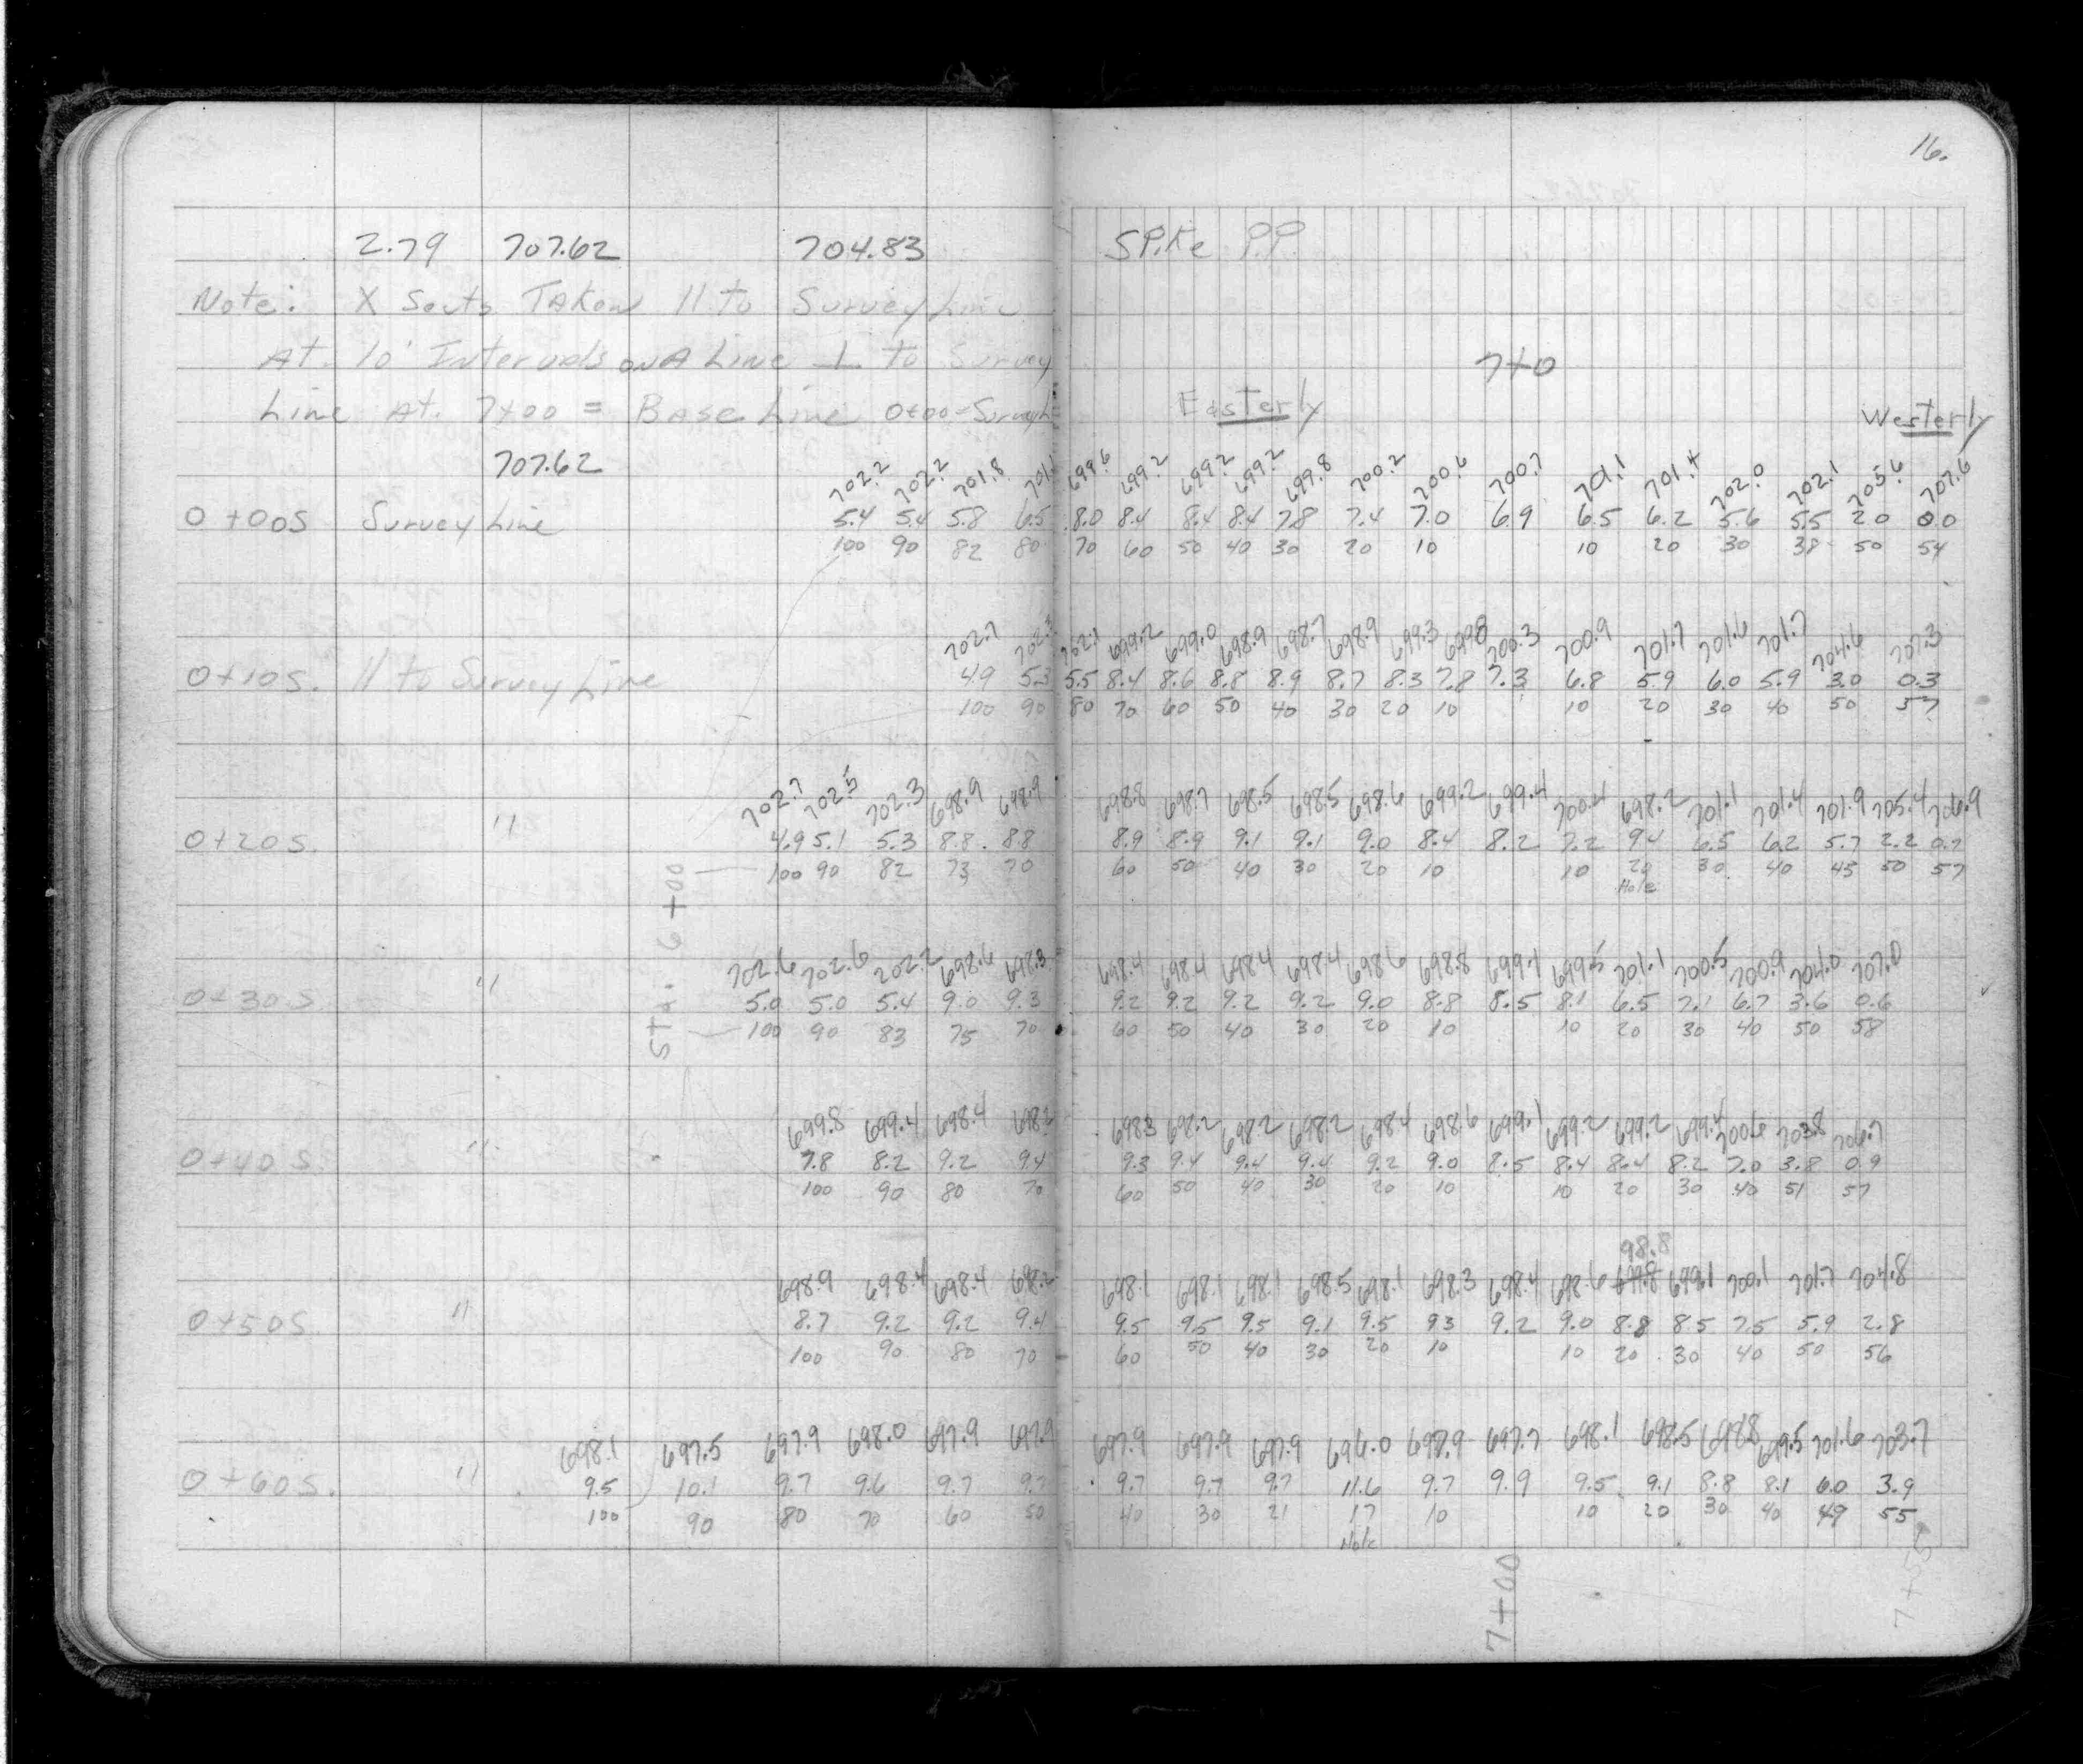 16.
2.79 707.62 704.83 SPiKe P.P.
Note: X Sects TAKen 11 to Survey Line
At. 10' Intervals on A Line ⊥ to Survey 7+0
Line At. 7+00 = BAse Line 0+00=Survey L Easterly Westerly
707.62
702.2 702.2 701.8 701.1 699.6 699.2 699.2 699.2 699.8 700.2 700.6 700.7 701.1 701.4 702.0 702.1 705.6 707.6
0+00S Survey Line 5.4 5.4 5.8 6.5 8.0 8.4 8.4 8.4 7.8 7.4 7.0 6.9 6.5 6.2 5.6 5.5 2.0 0.0
100 90 82 80 70 60 50 40 30 20 10 10 20 30 38 50 54
702.7 702.3 702.1 699.2 699.0 698.9 698.7 698.9 699.3 699.8 700.3 700.9 701.7 701.6 701.7 704.6 707.3
0+10S. 11 to Survey Line 4.9 5.3 5.5 8.4 8.6 8.8 8.9 8.7 8.3 7.8 7.3 6.8 5.9 6.0 5.9 3.0 0.3
100 90 80 70 60 50 40 30 20 10 10 20 30 40 50 57
702.7 702.5 702.3 698.9 698.9 698.8 698.7 698.5 698.5 698.6 699.2 699.4 700.4 698.2 701.1 701.4 701.9 705.4 706.9
0+20S. " 4.9 5.1 5.3 8.8 8.8 8.9 8.9 9.1 9.1 9.0 8.4 8.2 7.2 9.4 6.5 6.2 5.7 2.2 0.7
100 90 82 73 70 60 50 40 30 20 10 10 20 30 40 45 50 57
Hole
Sta. 6+00
702.6 702.6 702.2 698.6 698.3 698.4 698.4 698.4 698.4 698.6 698.8 699.1 699.5 701.1 700.5 700.9 704.0 707.0
0+30S " 5.0 5.0 5.4 9.0 9.3 9.2 9.2 9.2 9.2 9.0 8.8 8.5 8.1 6.5 7.1 6.7 3.6 0.6
100 90 83 75 70 60 50 40 30 20 10 10 20 30 40 50 58
699.8 699.4 698.4 698.2 698.3 698.2 698.2 698.2 698.4 698.6 699.1 699.2 699.2 699.4 700.6 703.8 706.7
0+40S. " 7.8 8.2 9.2 9.4 9.3 9.4 9.4 9.4 9.2 9.0 8.5 8.4 8.4 8.2 7.0 3.8 0.9
100 90 80 70 60 50 40 30 20 10 10 20 30 40 51 57
98.8
698.9 698.4 698.4 698.2 698.1 698.1 698.1 698.5 698.1 698.3 698.4 698.6 699.1 700.1 701.7 704.8
0+50S. " 8.7 9.2 9.2 9.4 9.5 9.5 9.5 9.1 9.5 9.3 9.2 9.0 8.8 8.5 7.5 5.9 2.8
100 90 80 70 60 50 40 30 20 10 10 20 30 40 50 56
698.1 697.5 697.9 698.0 697.9 697.9 697.9 697.9 697.9 696.0 697.9 697.7 698.1 698.5 698.8 699.5 701.6 703.7
0+60S. " 9.5 10.1 9.7 9.6 9.7 9.7 9.7 9.7 9.7 11.6 9.7 9.9 9.5 9.1 8.8 8.1 6.0 3.9
100 90 80 70 60 50 40 30 21 17 10 10 20 30 40 49 55
Hole
7+00
7+55